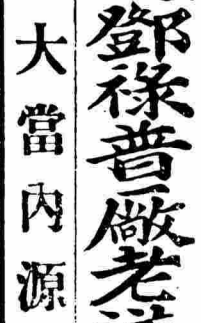 鄧祿普厰老
大當內源